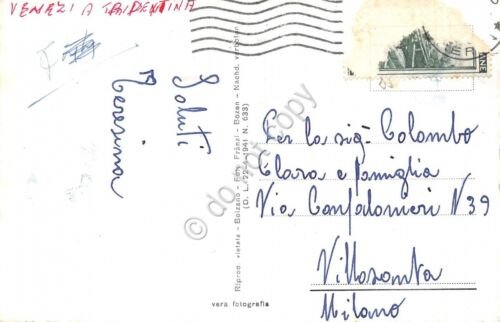 VENEZIA TRIDENTINA
Saluti
Teresina
Riprod. vietata - Bolzano - Foto Fränzl - Bozen - Nachd. verboten
(D. L. 22-1-1941 N. 633)
vera fotografia
Per la sig- Colombo
Clara e famiglia
Via Confalonieri N 39
Villasanta
Milano
do not copy